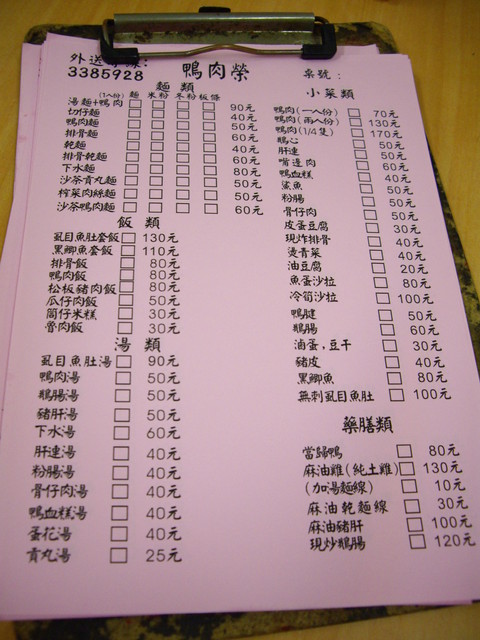 外送專線:
3385928
鴨肉榮
桌號:
麵 類
(1人份) 麵 米粉 冬粉 板條
湯麵+鴨肉 □ □ □ □ 90元
切仔麵 □ □ □ □ 40元
鴨肉麵 □ □ □ □ 50元
排骨麵 □ □ □ □ 60元
乾麵 □ □ □ □ 40元
排骨乾麵 □ □ □ □ 60元
下水麵 □ □ □ □ 80元
沙茶貢丸麵 □ □ □ □ 50元
榨菜肉絲麵 □ □ □ □ 50元
沙茶鴨肉麵 □ □ □ □ 60元
飯 類
虱目魚肚套飯 □ 130元
黑鯽魚套飯 □ 110元
排骨飯 □ 80元
鴨肉飯 □ 80元
松板豬肉飯 □ 80元
瓜仔肉飯 □ 50元
筒仔米糕 □ 30元
魯肉飯 □ 30元
湯 類
虱目魚肚湯 □ 90元
鴨肉湯 □ 50元
鵝腸湯 □ 50元
豬肝湯 □ 50元
下水湯 □ 60元
肝連湯 □ 40元
粉腸湯 □ 40元
骨仔肉湯 □ 40元
鴨血糕湯 □ 40元
蛋花湯 □ 40元
貢丸湯 □ 25元
小菜類
鴨肉(一人份) □ 70元
鴨肉(兩人份) □ 130元
鴨肉(1/4隻) □ 170元
鴨心 □ 50元
肝連 □ 50元
嘴邊肉 □ 60元
鴨血糕 □ 40元
鯊魚 □ 50元
粉腸 □ 50元
骨仔肉 □ 40元
皮蛋豆腐 □ 30元
現炸排骨 □ 40元
燙青菜 □ 40元
油豆腐 □ 20元
魚蛋沙拉 □ 80元
冷筍沙拉 □ 100元
鴨腱 □ 50元
鵝腸 □ 60元
滷蛋,豆干 □ 30元
豬皮 □ 40元
黑鯽魚 □ 80元
無刺虱目魚肚 □ 100元
藥膳類
當歸鴨 □ 80元
麻油雞(純土雞) □ 130元
(加湯麵線) □ 10元
麻油乾麵線 □ 30元
麻油豬肝 □ 100元
現炒鵝腸 □ 120元